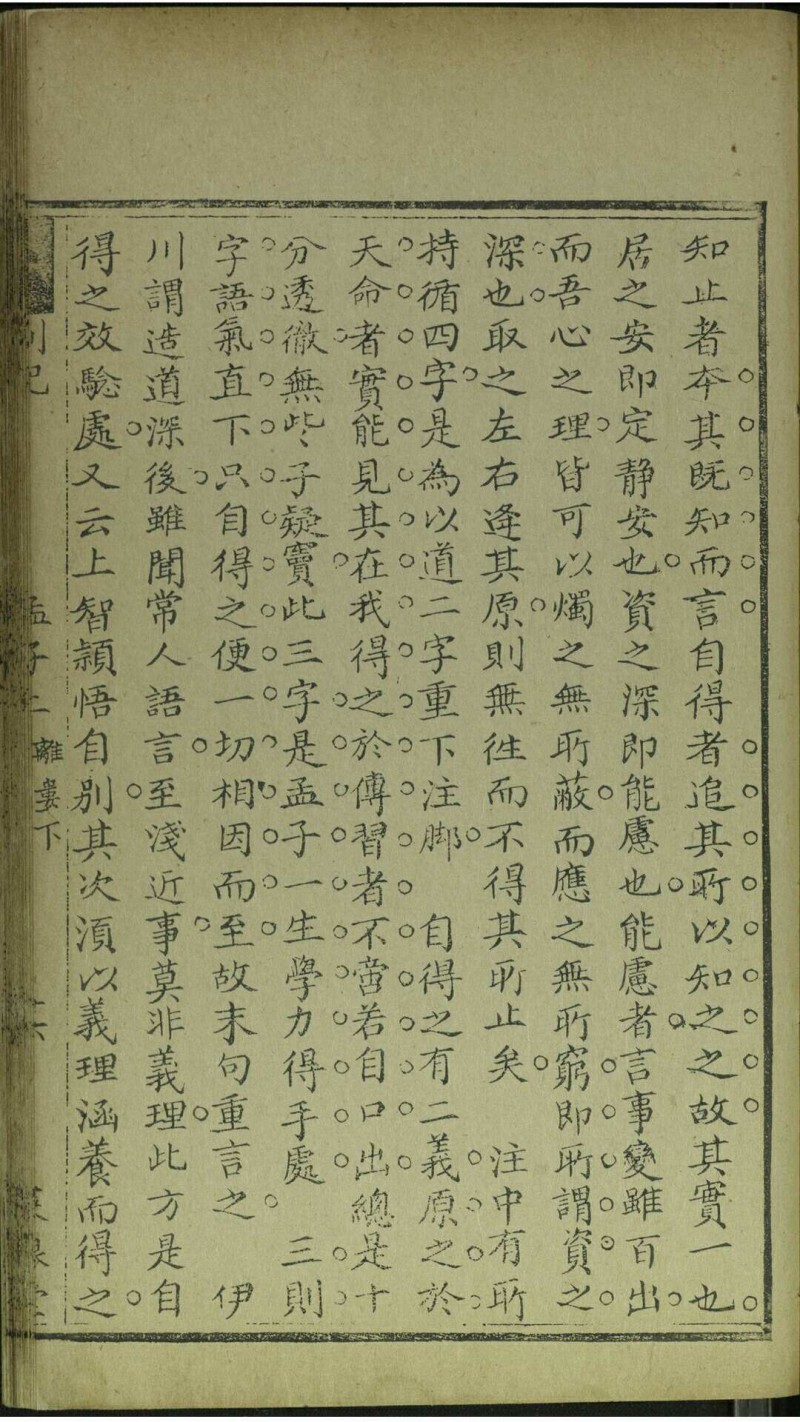 知止者夲其既知而言自得者追其所以知之之故其實一也
居之安即定静安也資之深即能慮也能慮者言事變雖百出
而吾心之理皆可以燭之無所蔽而應之無所窮即所謂資之
深也取之左右逢其原則無徃而不得其所止矣　注中有所
持循四字是為以道二字重下注脚　自得之有二義原之於
天命者實能見其在我得之於傳習者不啻若自口出總是十
分透徹無些子疑竇此三字是孟子一生學力得手處　三則
字語氣直下只自得之便一切相因而至故末句重言之　伊
川謂造道深後雖聞常人語言至淺近事莫非義理此方是自
得之效驗處又云上智穎悟自别其次湏以義理涵養而得之
劄記
孟子二離婁下